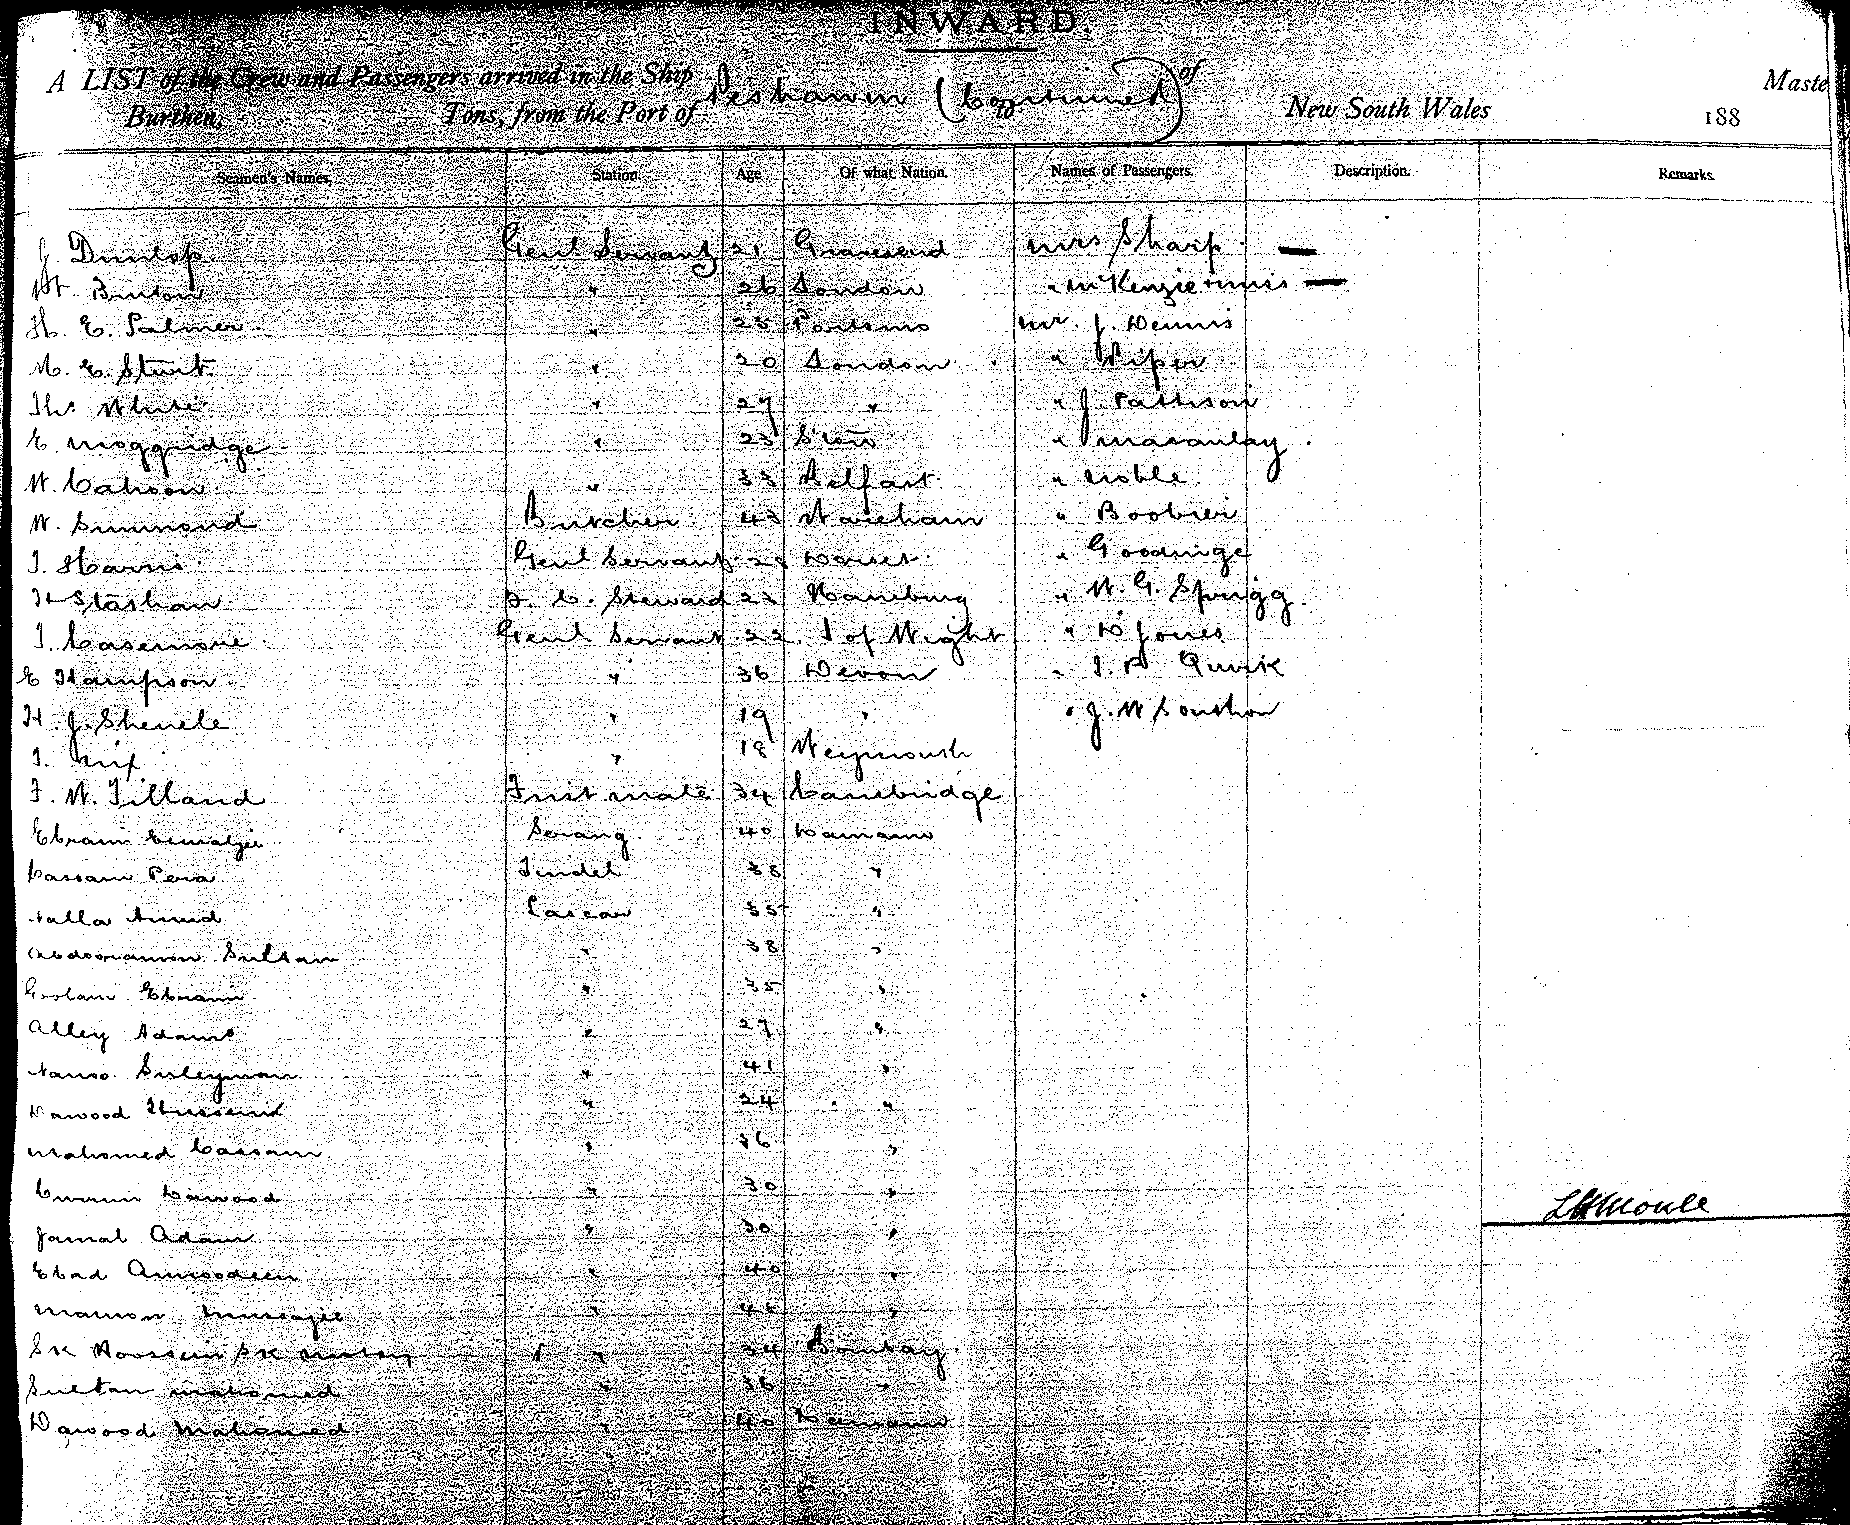 INWARD.
A LIST of the Crew and Passengers arrived in the Ship Peshawur (Continued) of Master
Burthen, Tons, from the Port of to New South Wales 188
Seamen's Names. Station Age Of what Nation. Names of Passengers. Description. Remarks.
J. Dunlop Genl Servant 21 Gravesend Mrs Sharp —
Wm Burton " 26 London " McKenzie + Miss —
H. E. Palmer " 25 Portsmo Mr. J. Dennis
W. E. Sturt " 20 London " Piper
Ths White " 27 " " J. Pattison
E Moggridge " 23 " Macaulay
W. Cahoon " 33 Belfast " Noble
W. Simmond Butcher 43 Wareham " Boobier
T. Harris Genl Servant Dorset " Goodinge
H Stashan Steward 23 Hamburg " W. G. Sprigg
T. Casemore Genl Servant 22 I of Wight " D Jones
E Hampson " 36 Devon " Quirk
H. J. Shenele " 19 " " J. W Southon
T. Nix " 18 Weymouth
F. W. Tilland First Mate 34 Cambridge
Ebram Serang 40 Damaun
Cassam Pera Tindel 38 "
Nalla Amud Lascar 35 "
Sultan " 38 "
Goolam Ebram " 35 "
Alley Adam " 27 "
Nanoo Suleyman " 41 "
Dawood Hussein " 24 "
Mahomed Cassam " 36 "
Dawood " 30 "
L H Moule
Jamal Adam " 30 "
Ebad Amoodeen " 40 "
Mamon Musajee " "
Sk Hoossein Sk " 34 Bombay
Sultan Mahomed " 36 "
Dawood Mahomed " 40 Damaun